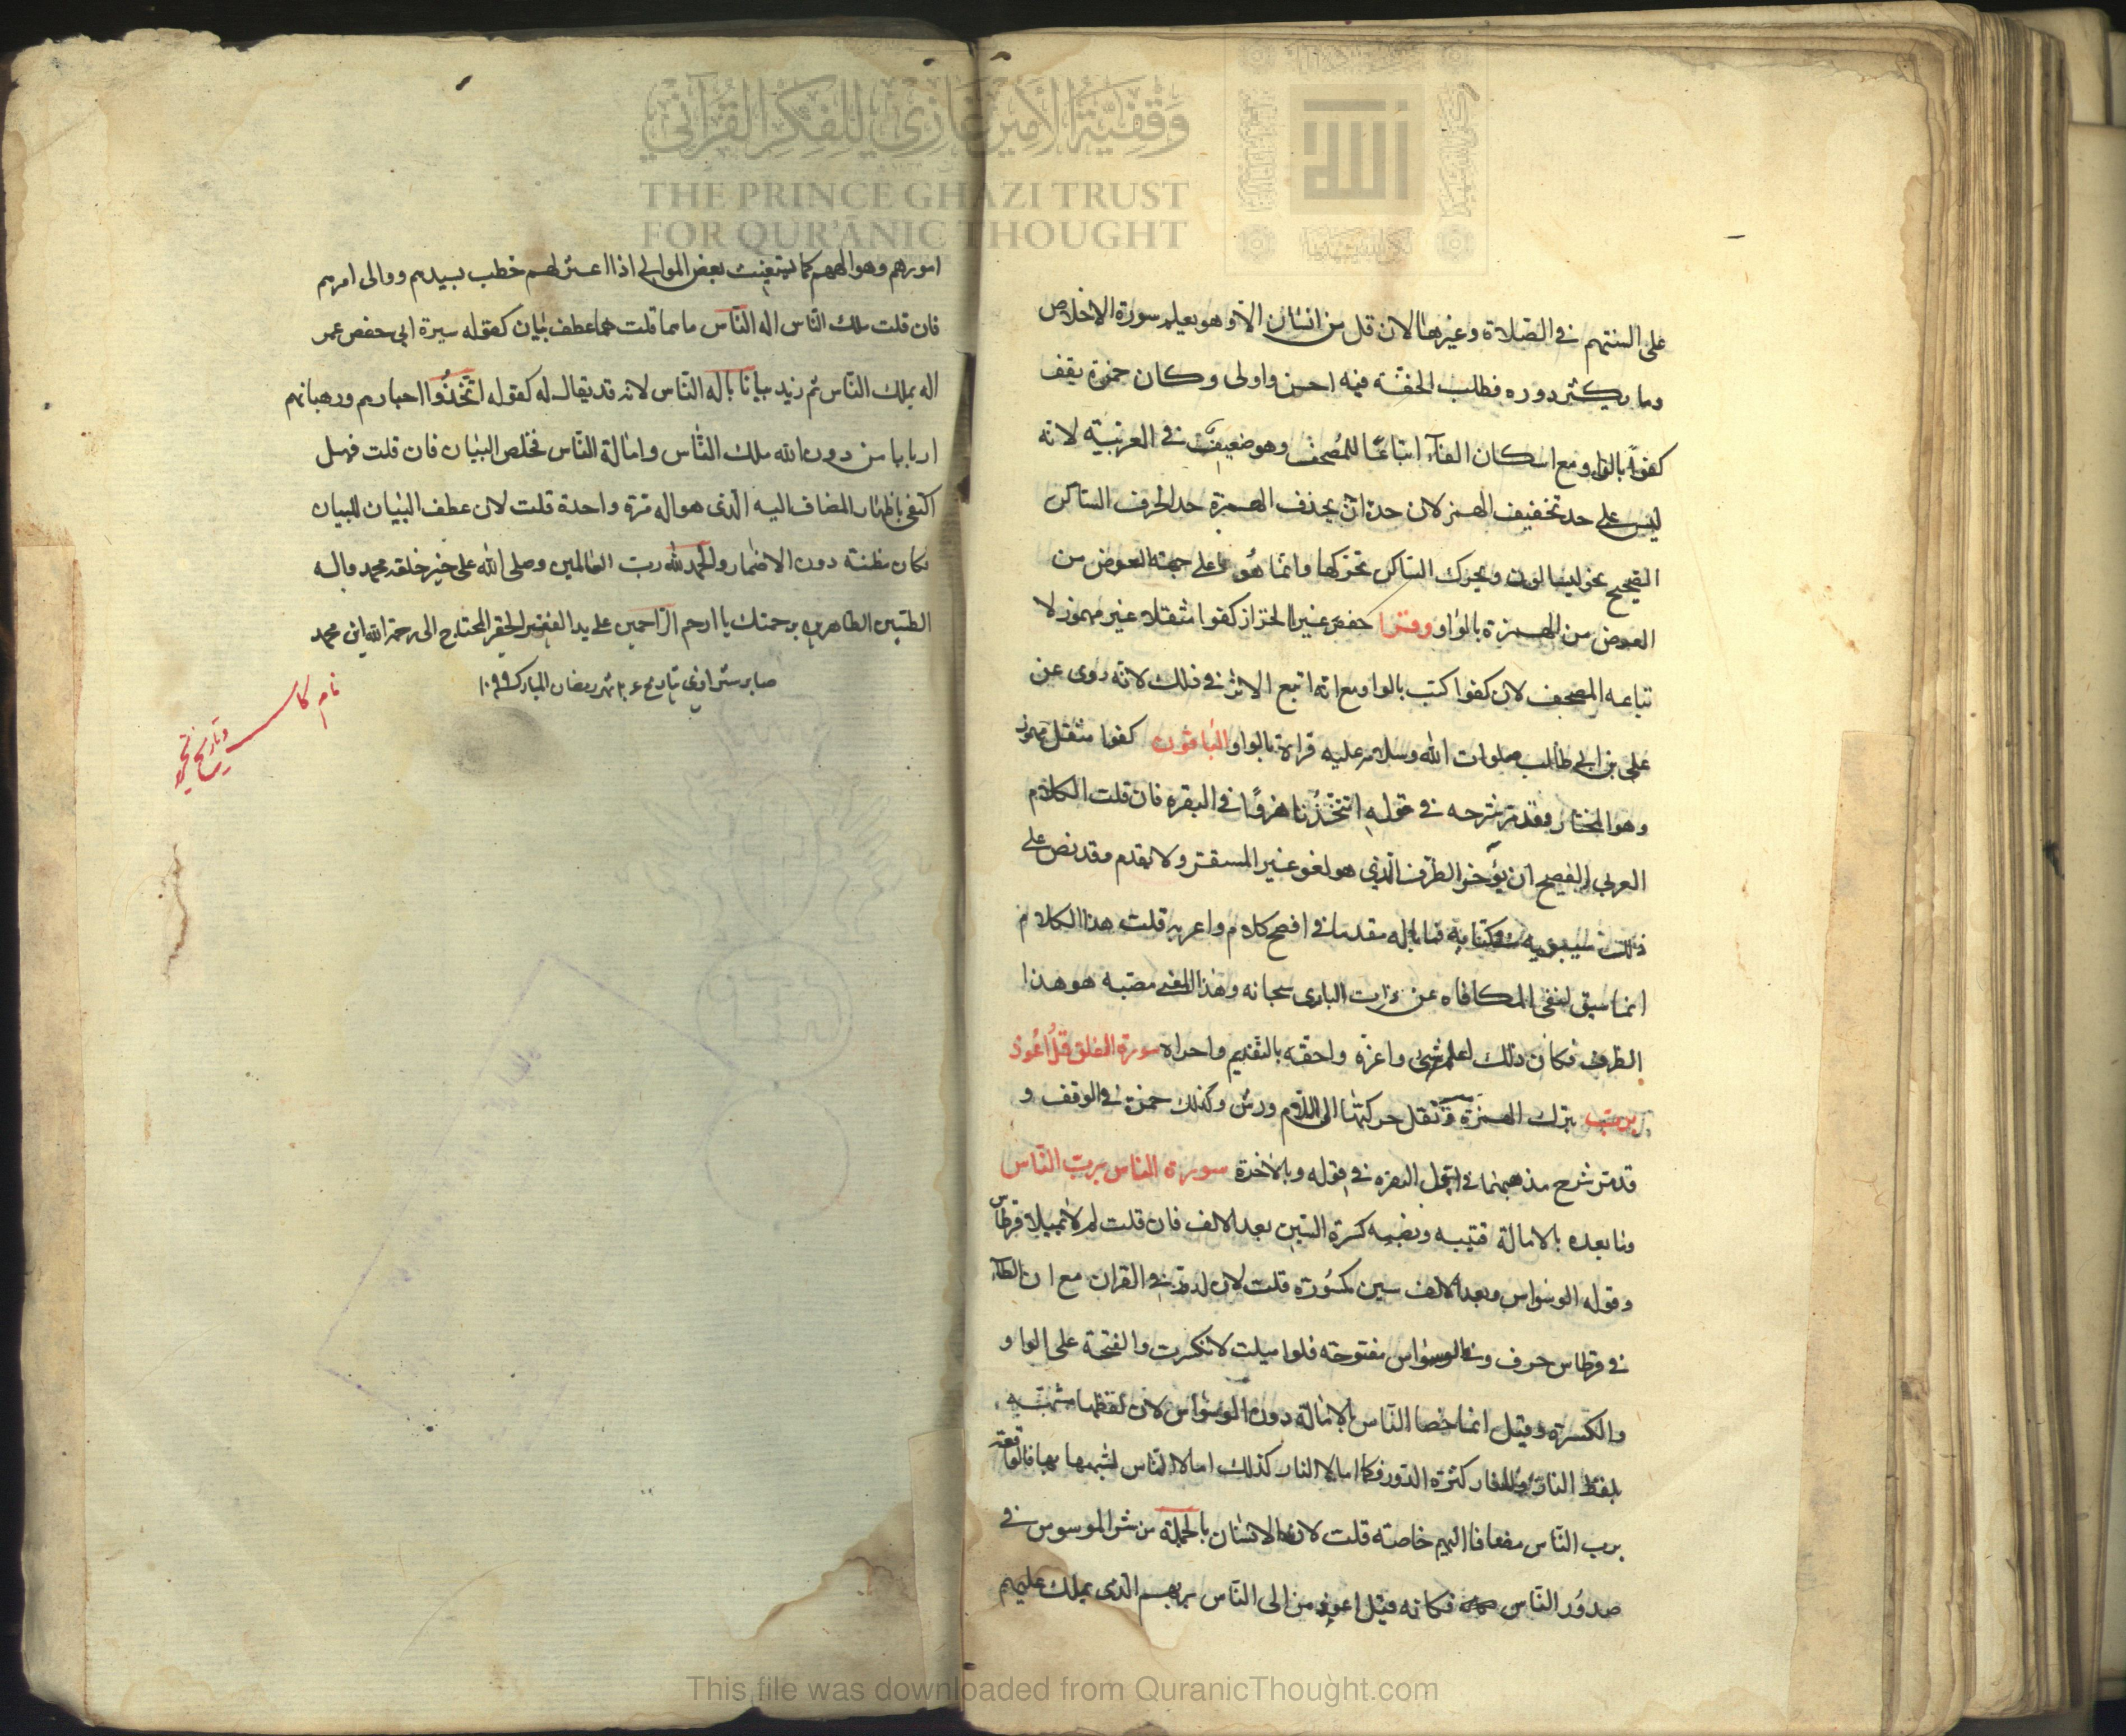 وقفية الأمير غازي للفكر القرآني
THE PRINCE GHAZI TRUST
FOR QUR'ĀNIC THOUGHT
الله
على السنتهم في الصلاة وغيرها لان قل من انسان الا وهو يعلم سورة الاخلاص
وما يكثر دوره فطلب الخفة فيه احسن واولى وكان حمزة يقف
كفوا بالواو مع اسكان الفآء اتباعًا للمُصحف وهو ضعيف في العربيّة لانه
ليس على حد تخفيف الهمز لان حده ان يحذف الهمزة حد الحرف الساكن
الصحيح ويحرك الساكن بحركتها وانما هُو على جهة العوض من
العوض من الهمزة بالواو وقرا حفص غير الخزاز كفوا مثقلا غير مهموز لا
تباعه المصحف لان كفوا كتب بالواو مع انه اتبع الاثر في ذلك لانه روى عن
على بن ابي طالب صلوات الله وسلامه عليه قراءة بالواو الباقون كفوا مثقل مهموز
وهو المختار وقد مر شرحه في قوله اتتخذُنا هزوًا في البقره فان قلت الكلام
العربي الفصيح ان يؤخر الظرف الذي هو لغو غير المستقر ولا يقدم وقد نص على
ذلك سيبويه في كتابه فما باله مقدما في افصح كلام واعربه قلت هذا الكلام
انما سيق لنفي المكافاه عن ذات البارى سبحانه وهذا المعنى مصبه هو هذا
الظرف فكان ذلك اعلم شي واعزه واحقه بالتقديم واحراه سورة الفلق قلُ اعُوذ
برب بترك الهمزة ونقل حركتها الى اللام ورش وكذلك حمزة في الوقف و
قد مر شرح مذهبهما في اول البقره في قوله وبالاخرة سورة الناس برب النّاس
وما بعده بالامالة قتيبه ونصير كسرة السين بعد الالف فان قلت لم لا تميلا قرطاس
وقوله الوسواس وبعد الالف سين مكسُورة قلت لان لدورة في القران مع ان الطآء
في قرطاس حرف وفي الوسواس مفتوحته فلو اميلت لانكسرت والفتحة على الواو
والكسرة وقيل انما خصا النّاس بالامالة دون الوسواس لان لفظها مشبّه
بلفظ النار كثرة الدور فكما امالا النار كذلك امالا النّاس لشبهها بها
برب النّاس مضافا اليهم خاصة قلت لان الانسان بالجملة من شر الموسوس في
صدُور النّاس فكانه قيل اعوذ من الى النّاس بربهم الذي يملك عليهم
امورهم وهو الههم كما يستغيث بعض الموالي اذا اعتز لهم خطب بسيدهم ووالى امرهم
فان قلت ملك النّاس اله النّاس ما هما قلت هما عطف بيان كقوله سيرة ابى حفص عمر
اله بملك النّاس ثم زيد بيانا باله النّاس لانه قد يقال له كقوله اتّخذُوا احبارهم ورهبانهم
اربابا من دون الله ملك النّاس وامالة النّاس فخلص البيان فان قلت فهل
اكتفى باظهار المضاف اليه الذي هو اله مرة واحدة قلت لان عطف البيان للبيان
فكان مظنة دون الاضمار والحمد لله رب العالمين وصلى الله على خير خلقه محمد واله
الطيبين الطاهرين برحمتك يا ارحم الراحمين على يد الفقير الحقير المحتاج الى رحمة الله ابن محمد
صابر بتاريخ شهر رمضان المبارك ١٠٩٩
نام كاتب
وتاريخ تحرير
This file was downloaded from QuranicThought.com